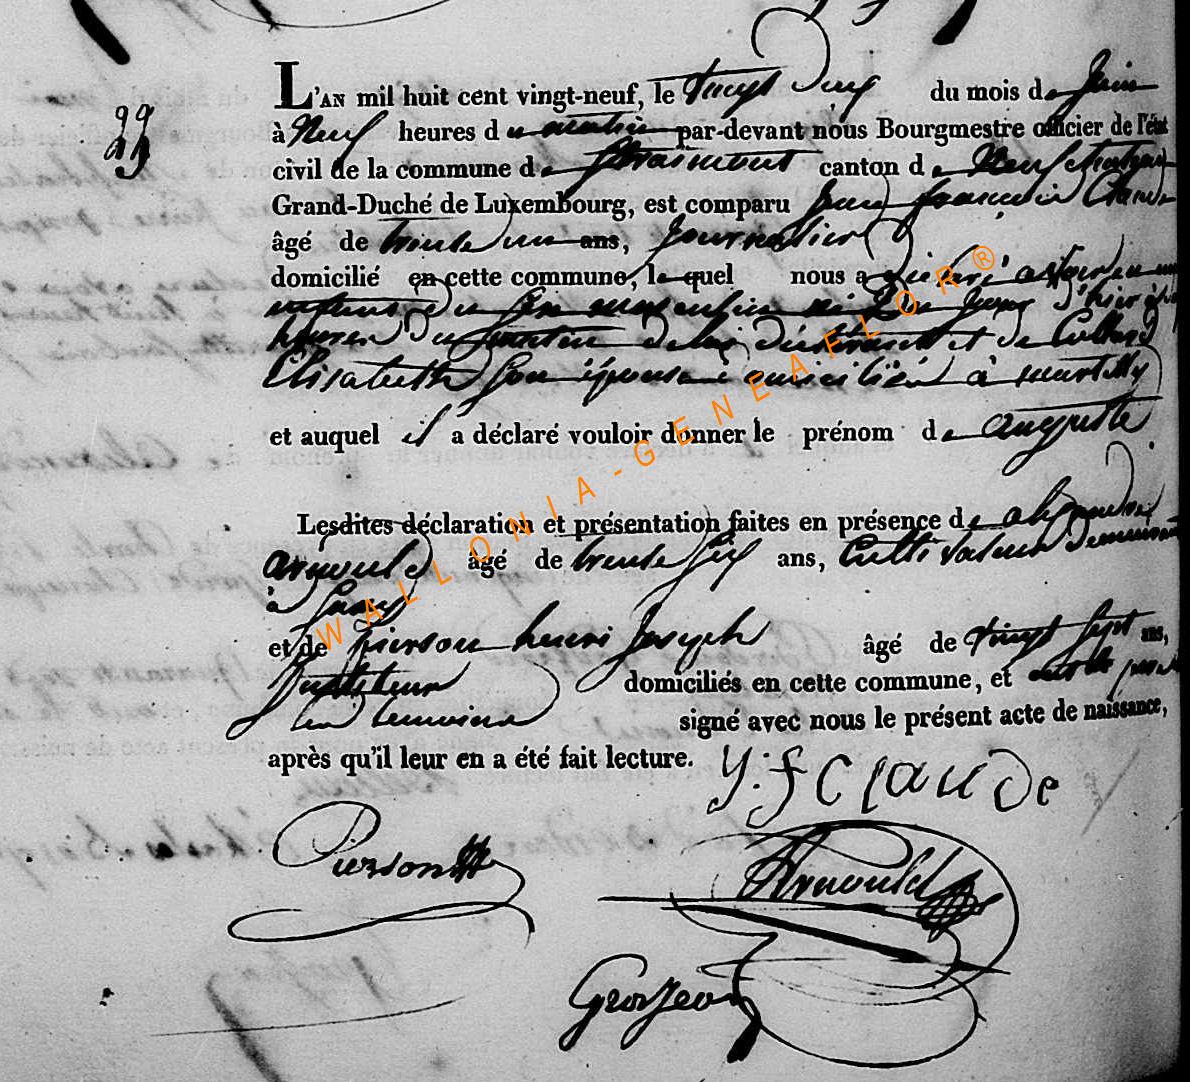 L'AN mil huit cent vingt-neuf, le vingt du mois de Juin
à Neuf heures du matin par-devant nous Bourgmestre officier de l'état
civil de la commune de Straimont canton de Neufchateau
Grand-Duché de Luxembourg, est comparu Jean françois Claude
âgé de trente un ans, Journalier
domicilié en cette commune, lequel nous a déclaré avoir eu un
enfant du sexe masculin né hier
heures du matin de lui déclarant et de Collard
Elisabeth son épouse domiciliés à martilly
et auquel il a déclaré vouloir donner le prénom de auguste
Lesdites déclaration et présentation faites en présence de alexandre
arnould âgé de trente six ans, Cultivateur demeurant
à Suxy
et de pierson henri Joseph âgé de vingt sept ans,
Instituteur domiciliés en cette commune, et ont le père
les temoins signé avec nous le présent acte de naissance,
après qu'il leur en a été fait lecture. J:f Claude
Pierson
Arnould
Grosjean
WALLONIA-GENEAFLOR®